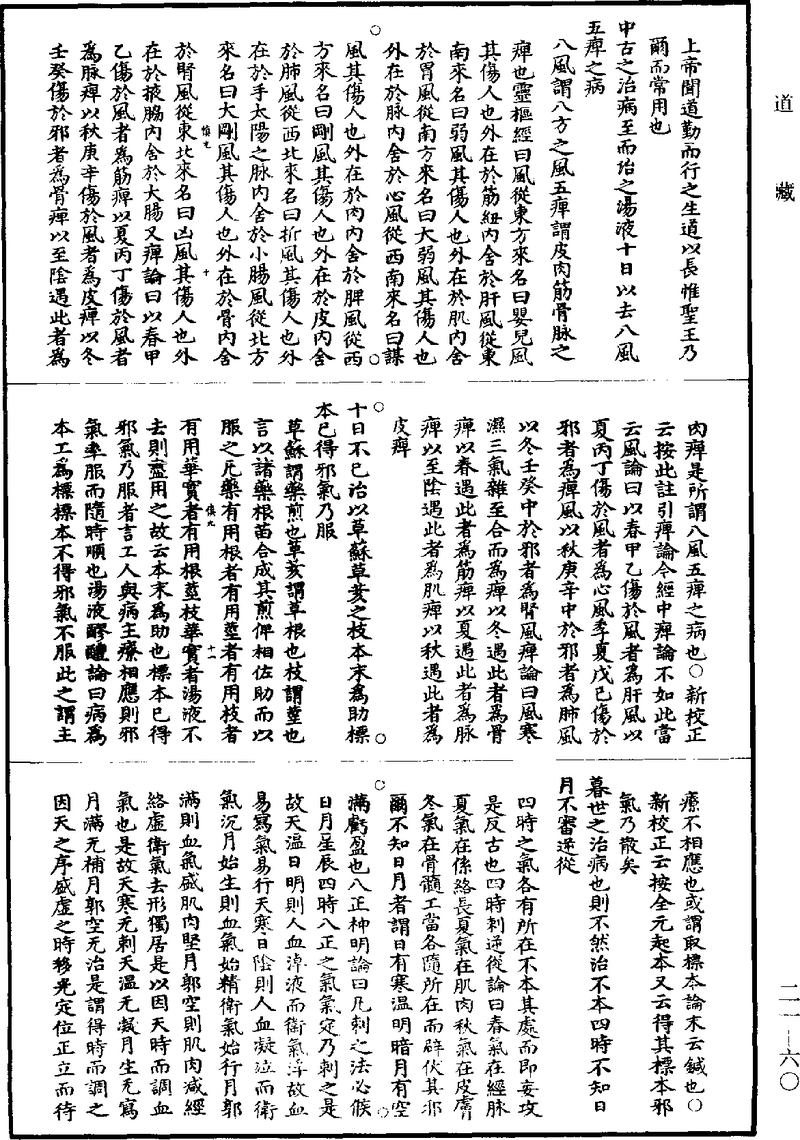 道藏
上帝聞道勤而行之生道以長惟聖王乃
爾而常用也
中古之治病至而治之湯液十日以去八風
五痺之病
八風謂八方之風五痺謂皮肉筋骨脉之
痺也靈樞經曰風從東方來名曰嬰兒風
其傷人也外在於筋紐內舍於肝風從東
南來名曰弱風其傷人也外在於肌內舍
於胃風從南方來名曰大弱風其傷人也
外在於脉內舍於心風從西南來名曰謀
風其傷人也外在於肉內舍於脾風從西
方來名曰剛風其傷人也外在於皮內舍
於肺風從西北來名曰折風其傷人也外
在於手太陽之脉內舍於小腸風從北方
來名曰大剛風其傷人也外在於骨內舍
於腎風從東北來名曰凶風其傷人也外
在於掖脇內舍於大腸又痺論曰以春甲
乙傷於風者為筋痺以夏丙丁傷於風者
為脉痺以秋庚辛傷於風者為皮痺以冬
壬癸傷於邪者為骨痺以至陰遇此者為
肉痺是所謂八風五痺之病也○新校正
云按此註引痺論今經中痺論不如此當
云風論曰以春甲乙傷於風者為肝風以
夏丙丁傷於風者為心風季夏戊己傷於
邪者為脾風以秋庚辛中於邪者為肺風
以冬壬癸中於邪者為腎風痺論曰風寒
濕三氣雜至合而為痺以冬遇此者為骨
痺以春遇此者為筋痺以夏遇此者為脉
痺以至陰遇此者為肌痺以秋遇此者為
皮痺
十日不已治以草蘇草荄之枝本末為助標
本已得邪氣乃服
草蘇謂藥煎也草荄謂草根也枝謂莖也
言以諸藥根苗合成其煎俾相佐助而以
服之凡藥有用根者有用莖者有用枝者
有用華實者有用根莖枝華實者湯液不
去則盡用之故云本末為助也標本已得
邪氣乃服者言工人與病主療相應則邪
氣率服而隨時順也湯液醪醴論曰病為
本工為標標本不得邪氣不服此之謂主
療不相應也或謂取標本論末云鍼也○
新校正云按全元起本又云得其標本邪
氣乃散矣
暮世之治病也則不然治不本四時不知日
月不審逆從
四時之氣各有所在不本其處而即妄攻
是反古也四時刺逆從論曰春氣在經脉
夏氣在係絡長夏氣在肌肉秋氣在皮膚
冬氣在骨髓工當各隨所在而辟伏其邪
爾不知日月者謂日有寒溫明暗月有空
滿虧盈也八正神明論曰凡刺之法必候
日月星辰四時八正之氣氣定乃刺之是
故天溫日明則人血淖液而衛氣浮故血
易寫氣易行天寒日陰則人血凝泣而衛
氣沉月始生則血氣始精衛氣始行月郭
滿則血氣盛肌肉堅月郭空則肌肉減經
絡虛衛氣去形獨居是以因天時而調血
氣也是故天寒无刺天溫无凝月生无寫
月滿无補月郭空无治是謂得時而調之
因天之序盛虛之時移光定位正立而待
二一—六〇